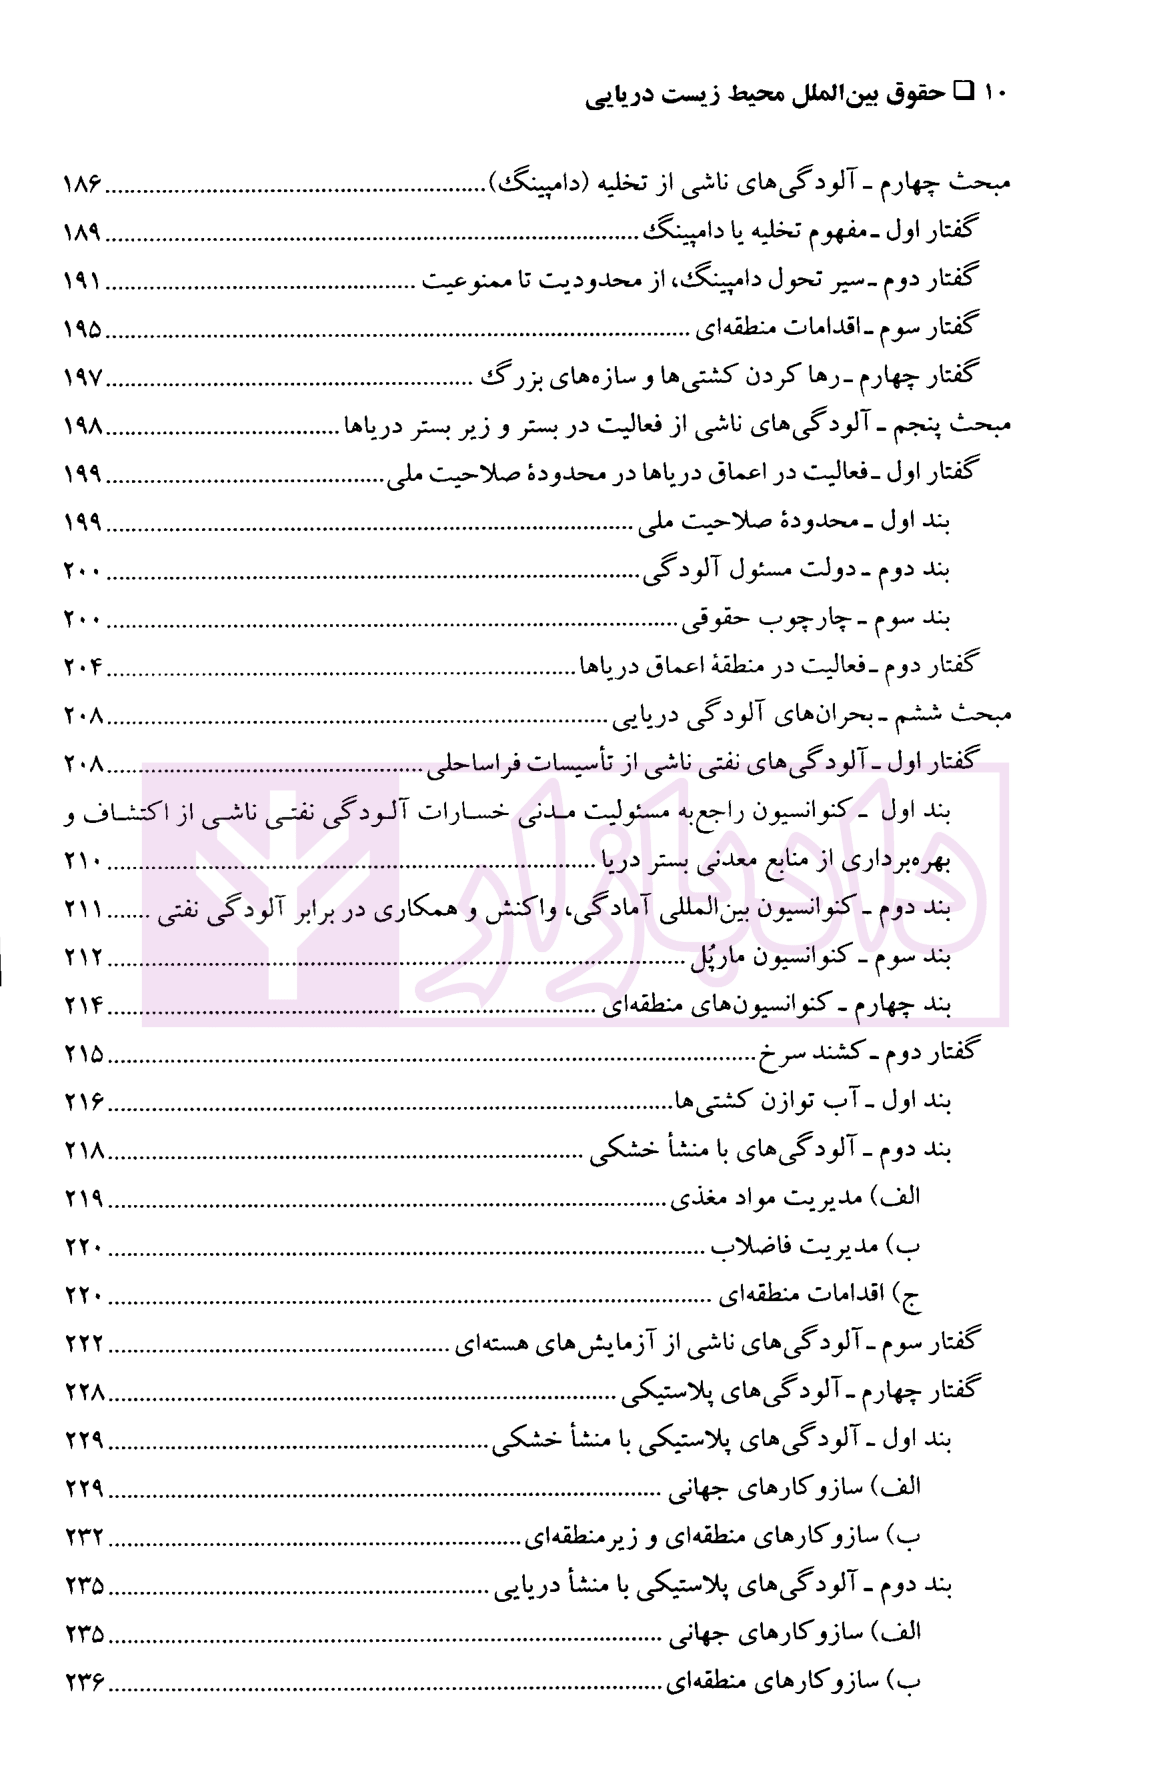 ۱۰ ❑ حقوق بین‌الملل محیط زیست دریایی
مبحث چهارم ـ آلودگی‌های ناشی از تخلیه (دامپینگ) ........ ۱۸۶
گفتار اول ـ مفهوم تخلیه یا دامپینگ ........ ۱۸۹
گفتار دوم ـ سیر تحول دامپینگ، از محدودیت تا ممنوعیت ........ ۱۹۱
گفتار سوم ـ اقدامات منطقه‌ای ........ ۱۹۵
گفتار چهارم ـ رها کردن کشتی‌ها و سازه‌های بزرگ ........ ۱۹۷
مبحث پنجم ـ آلودگی‌های ناشی از فعالیت در بستر و زیر بستر دریاها ........ ۱۹۸
گفتار اول ـ فعالیت در اعماق دریاها در محدودۀ صلاحیت ملی ........ ۱۹۹
بند اول ـ محدودۀ صلاحیت ملی ........ ۱۹۹
بند دوم ـ دولت مسئول آلودگی ........ ۲۰۰
بند سوم ـ چارچوب حقوقی ........ ۲۰۰
گفتار دوم ـ فعالیت در منطقۀ اعماق دریاها ........ ۲۰۴
مبحث ششم ـ بحران‌های آلودگی دریایی ........ ۲۰۸
گفتار اول ـ آلودگی‌های نفتی ناشی از تأسیسات فراساحلی ........ ۲۰۸
بند اول ـ کنوانسیون راجع‌به مسئولیت مدنی خسارات آلودگی نفتی ناشی از اکتشاف و
بهره‌برداری از منابع معدنی بستر دریا ........ ۲۱۰
بند دوم ـ کنوانسیون بین‌المللی آمادگی، واکنش و همکاری در برابر آلودگی نفتی ....... ۲۱۱
بند سوم ـ کنوانسیون مارپُل ........ ۲۱۲
بند چهارم ـ کنوانسیون‌های منطقه‌ای ........ ۲۱۴
گفتار دوم ـ کشند سرخ ........ ۲۱۵
بند اول ـ آب توازن کشتی‌ها ........ ۲۱۶
بند دوم ـ آلودگی‌های با منشأ خشکی ........ ۲۱۸
الف) مدیریت مواد مغذی ........ ۲۱۹
ب) مدیریت فاضلاب ........ ۲۲۰
ج) اقدامات منطقه‌ای ........ ۲۲۰
گفتار سوم ـ آلودگی‌های ناشی از آزمایش‌های هسته‌ای ........ ۲۲۲
گفتار چهارم ـ آلودگی‌های پلاستیکی ........ ۲۲۸
بند اول ـ آلودگی‌های پلاستیکی با منشأ خشکی ........ ۲۲۹
الف) سازوکارهای جهانی ........ ۲۲۹
ب) سازوکارهای منطقه‌ای و زیرمنطقه‌ای ........ ۲۳۲
بند دوم ـ آلودگی‌های پلاستیکی با منشأ دریایی ........ ۲۳۵
الف) سازوکارهای جهانی ........ ۲۳۵
ب) سازوکارهای منطقه‌ای ........ ۲۳۶
دادبازار